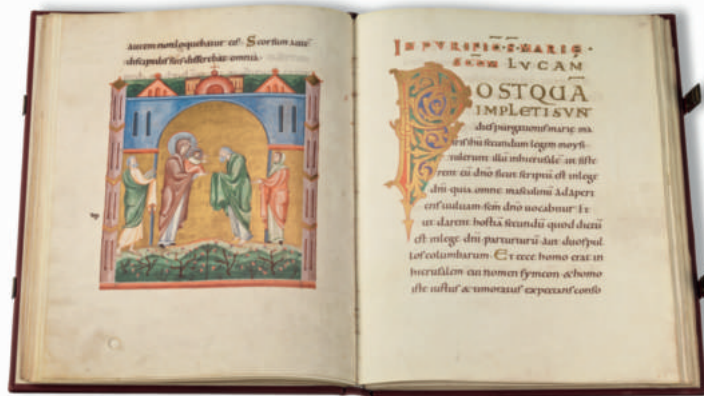 autem non loquebatur eis · Seorsum autē
discipulis suis disserebat omnia ·
IN PVRIFIC · S · MARIĘ ·
LVCAM
POSTQUĀ
IMPLETI SVN̄
dies purgationis marię ma
tris ihū secundum legem moysi
tulerunt illū inhierusalē ut siste
rent eū dn̄o sicut scriptū est inlege
dn̄i quia omne masculinū adaperi
ens uuluam scm̄ dn̄o uocabitur Et
ut darent hostiā secundū quod dictū
est inlege dn̄i par turturū aut duos pul
los columbarum · Et ecce homo erat in
hierusalem cui nomen symeon & homo
iste iustus & timoratus expectans conso